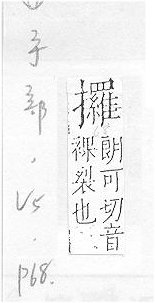 攞
朗可切音
裸裂也
手部.V5.p68.